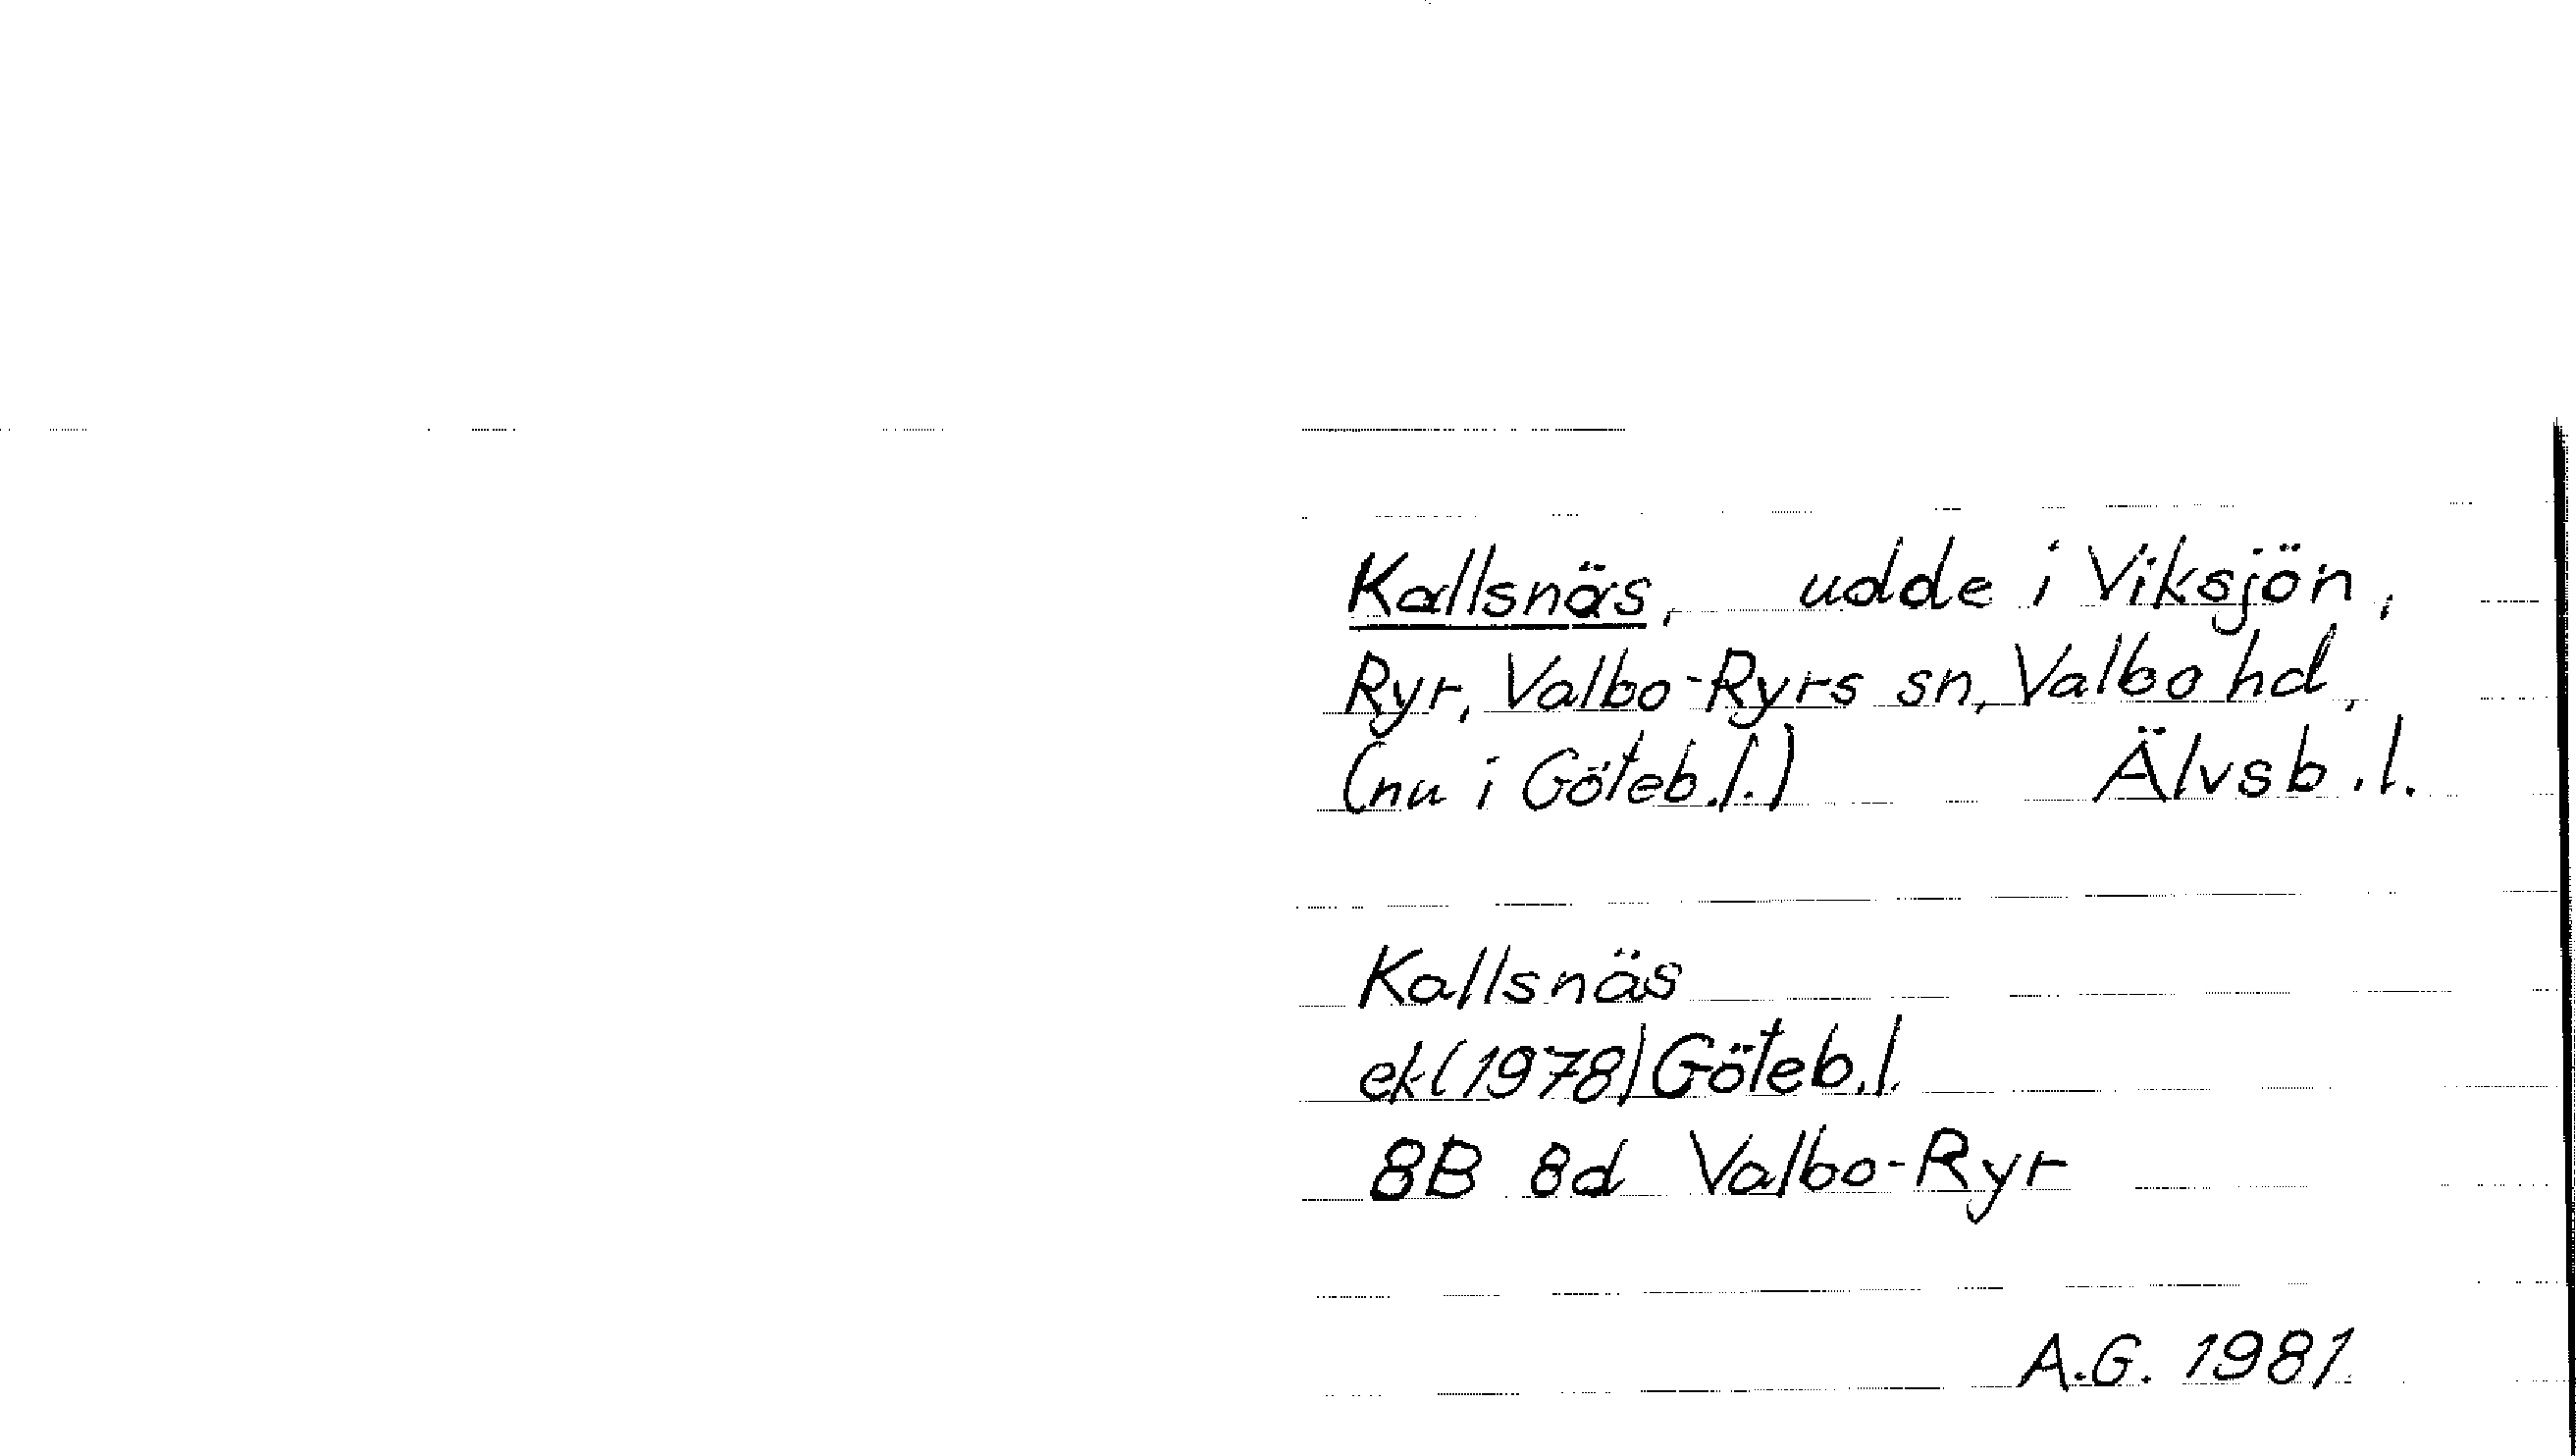 Kallsnäs, udde i Viksjön,
Ryr, Valbo-Ryrs sn, Valbo hd,
(nu i Göteb.l.) Älvsb.l.
Kallsnäs
ek(1978)Göteb.l.
8B 8d Valbo-Ryr
A.G. 1981